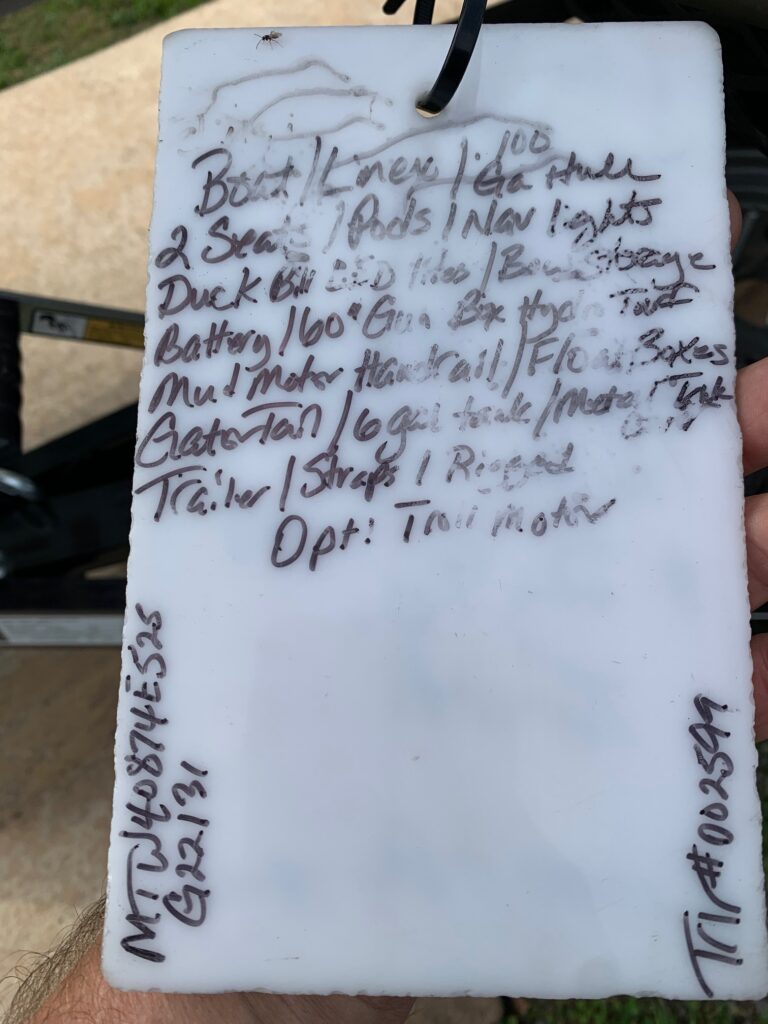 Boat / Linex / .100
Ga Hull
2 Seats / Pods / Nav lights
Duck Bill LED lites / Bow Storage
Battery / 60" Gun Box Hydro Turf
Mud Motor Handrail / Float Boxes
GatorTail / 6 gal tank / Metal Tank
Trailer / Straps / Rigged
Opt: Troll motor
MTW40874E525
G22131
Trlr#002599